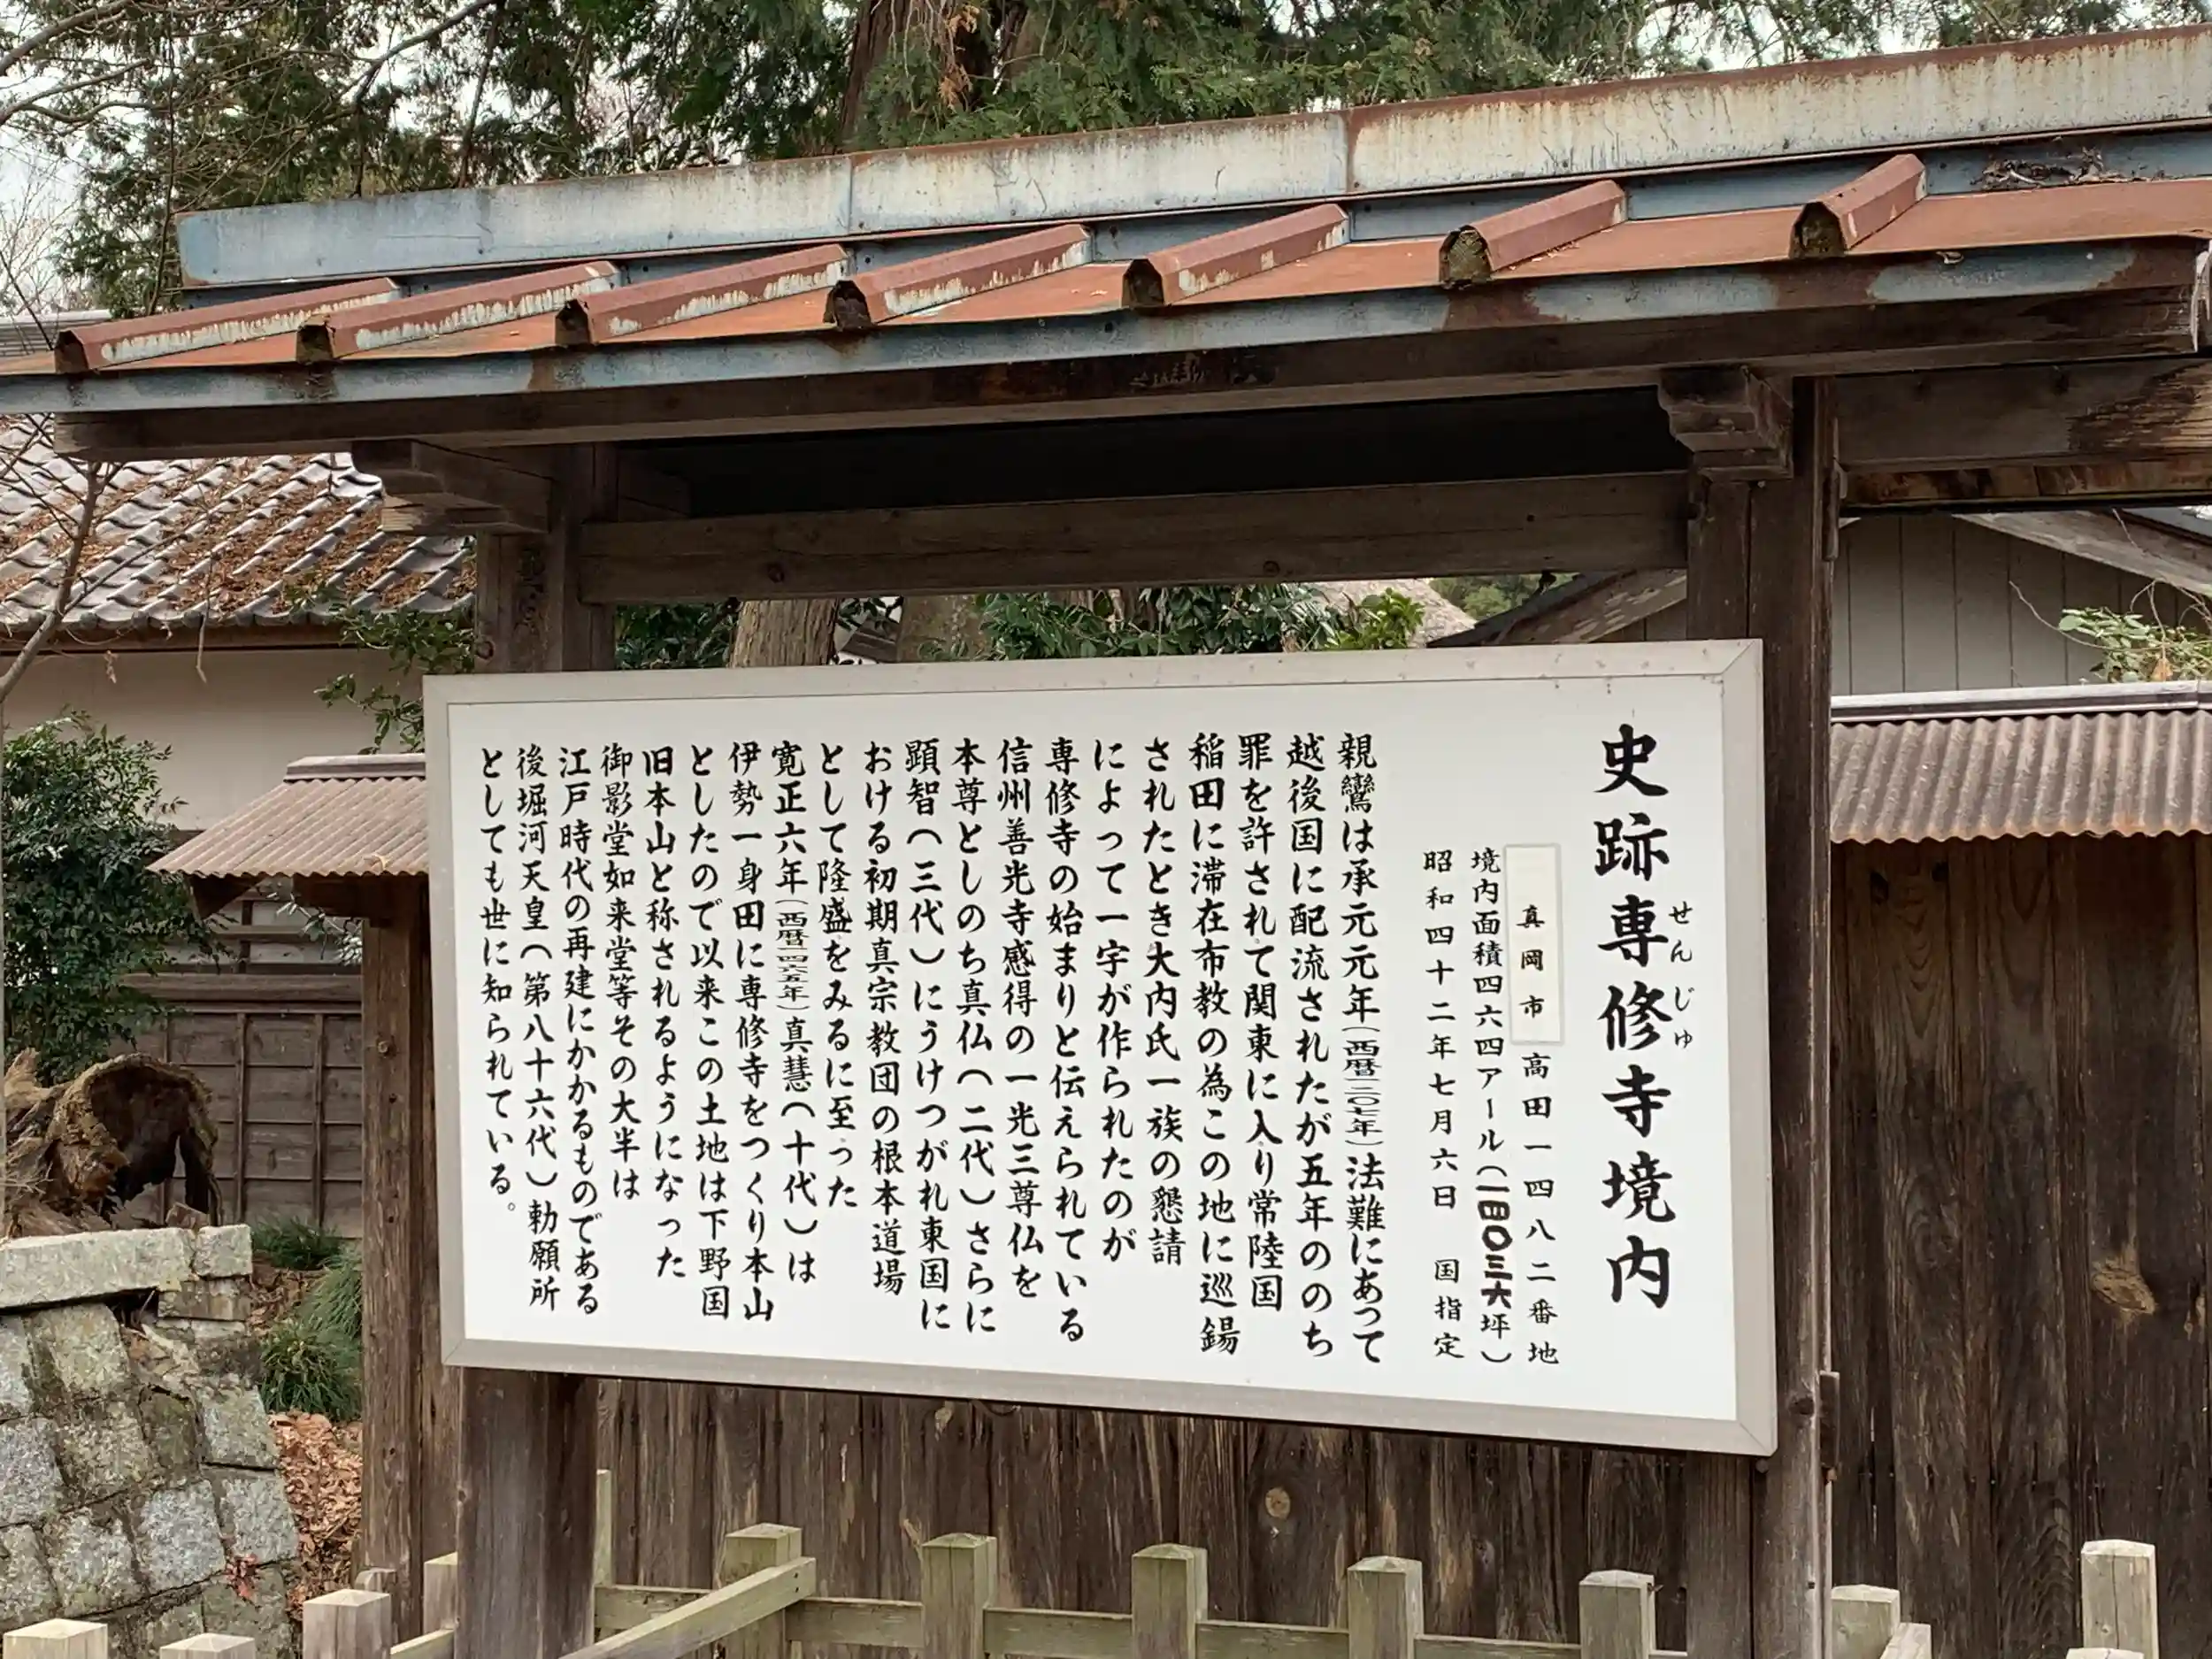 史跡専修寺境内
せんじゅ
真岡市高田一四八二番地
境内面積四六四アール(一四〇三六坪)
昭和四十二年七月六日 国指定
親鸞は承元元年(西暦一二〇七年)法難にあって
越後国に配流されたが五年ののち
罪を許されて関東に入り常陸国
稲田に滞在布教の為この地に巡錫
されたとき大内氏一族の懇請
によって一宇が作られたのが
専修寺の始まりと伝えられている
信州善光寺感得の一光三尊仏を
本尊としのち真仏(二代)さらに
顕智(三代)にうけつがれ東国に
おける初期真宗教団の根本道場
として隆盛をみるに至った
寛正六年(西暦一四六五年)真慧(十代)は
伊勢一身田に専修寺をつくり本山
としたので以来この土地は下野国
旧本山と称されるようになった
御影堂如来堂等その大半は
江戸時代の再建にかかるものである
後堀河天皇(第八十六代)勅願所
としても世に知られている。